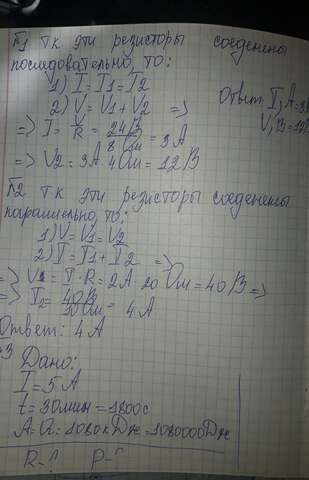 №1 Т.к эти резисторы соеденены
последовательно, то:
1) I = I1 = I2
2) V = V1 + V2 =>
=> I = V/R = 24В/8 Ом = 3А
=> V2 = 3А 4 Ом = 12 В
Ответ: I, А = 3А
V, В = 12В
№2 Т.к эти резисторы соеденены
параллельно, то:
1) V = V1 = V2
2) I = I1 + I2 =>
=> V1 = I · R = 2А · 20 Ом = 40 В =>
=> I2 = 40В/10 Ом = 4 А
Ответ: 4 А
№3 Дано:
I = 5 А
t = 30 мин = 1800с
A = Q = 1080 кДж = 1080000 Дж
R - ? P - ?